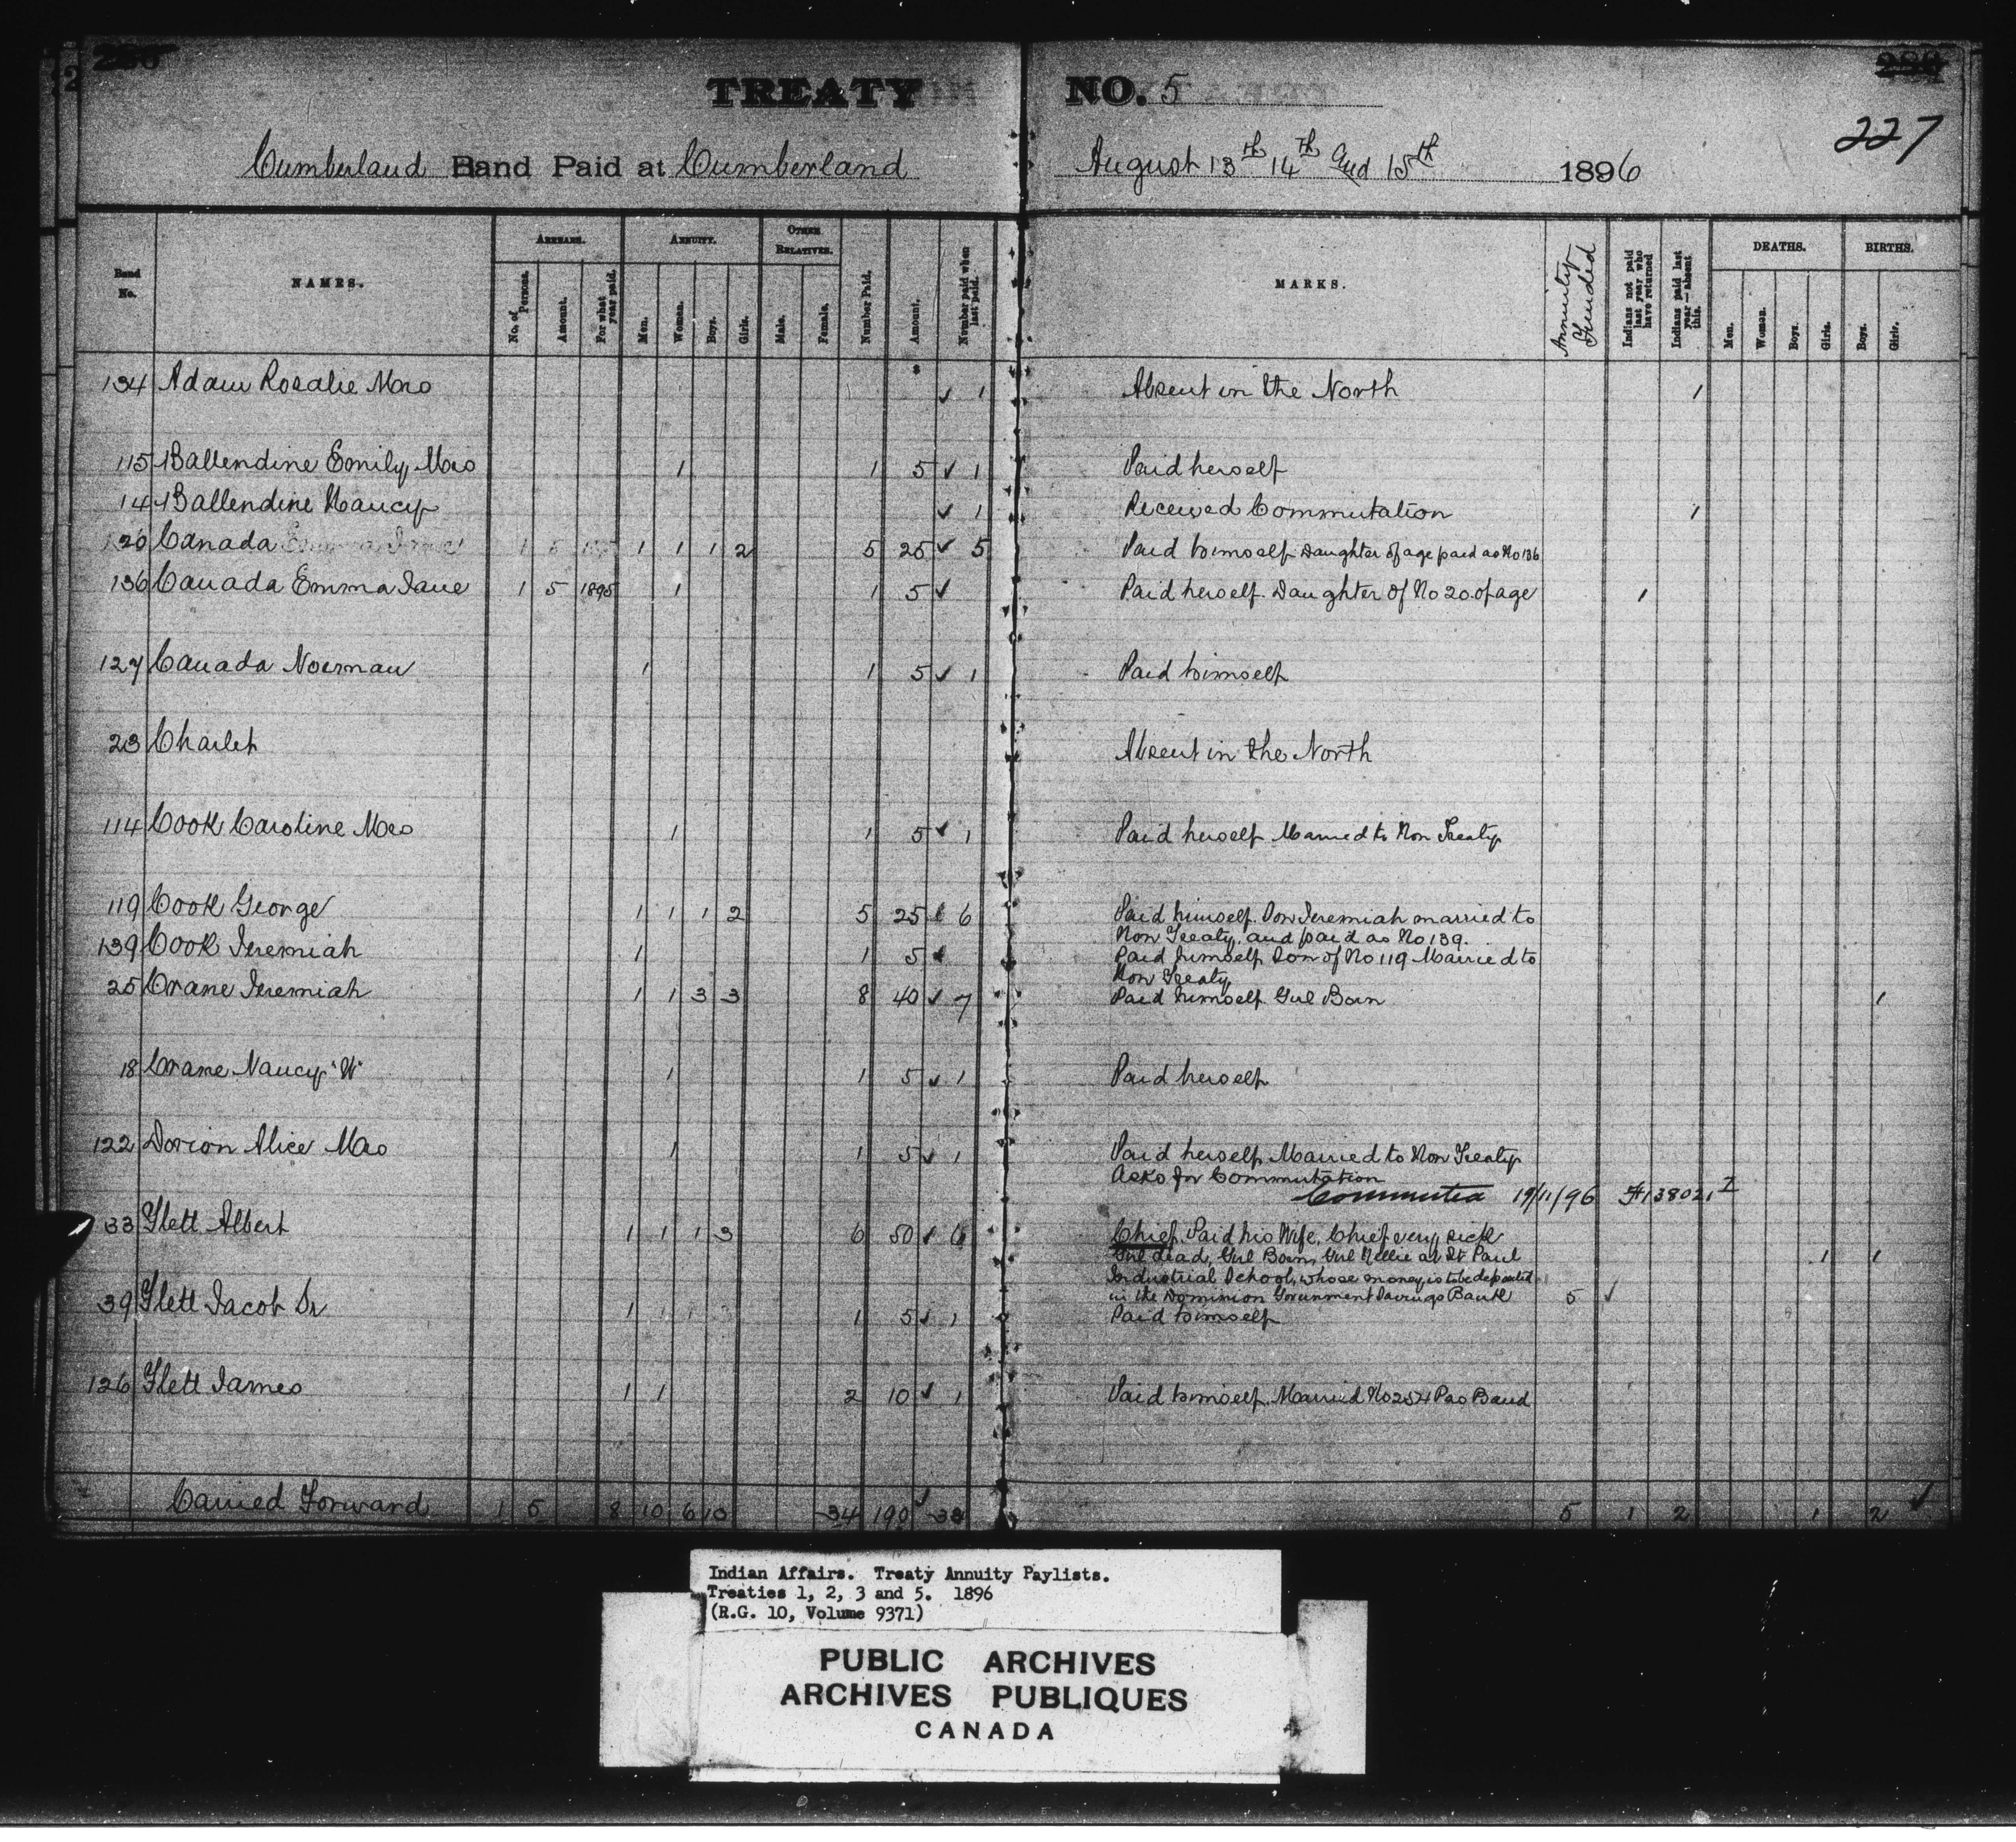 TREATY NO. 5
227
Cumberland Band Paid at Cumberland August 13th 14th and 15th 1896
Band No.
NAMES.
ARREARS.
No. of Persons.
Amount.
For what year paid.
ANNUITY.
Men.
Women.
Boys.
Girls.
OTHER RELATIVES.
Male.
Female.
Number Paid.
Amount.
Number paid when last paid.
MARKS.
Annuity Funded
Indians not paid last year who have returned
Indians paid last year—absent this.
DEATHS.
Men.
Women.
Boys.
Girls.
BIRTHS.
Boys.
Girls.
134 Adam Rosalie Mrs ✓ 1 Absent in the North 1
115 Ballendine Emily, Mrs 1 1 5 ✓ 1 Paid herself
14 Ballendine Nancy ✓ 1 Received Commutation 1
20 Canada 1 1 1 2 5 25 ✓ 5 Paid himself Daughter of age paid as No 136
136 Canada Emma Jane 1 5 1895 1 1 5 ✓ Paid herself. Daughter of No 20. of age 1
127 Canada Norman 1 1 5 ✓ 1 Paid himself
23 Charlet Absent in the North
114 Cook Caroline Mrs 1 1 5 ✓ 1 Paid herself Married to Non Treaty
119 Cook George 1 1 1 2 5 25 ✓ 6 Paid himself. Son Jeremiah married to
Non Treaty, and paid as No 139.
139 Cook Jeremiah 1 1 5 ✓ Paid himself Son of No 119 Married to
Non Treaty
25 Crane Jeremiah 1 1 3 3 8 40 ✓ 7 Paid himself Girl Born 1
18 Crane Nancy "W" 1 1 5 ✓ 1 Paid herself
122 Dorion Alice Mrs 1 1 5 ✓ 1 Paid herself, Married to Non Treaty
Asks for Commutation
Commuted 19/11/96 #138021
33 Flett Albert 1 1 1 3 6 50 ✓ 6 Chief. Paid his Wife, Chief very sick
Girl dead, Girl Born, Girl Nellie at St Paul 1 1
Industrial School, whose money is to be deposited
in the Dominion Government Savings Bank 5 ✓
39 Flett Jacob Sr 1 1 5 ✓ 1 Paid himself
126 Flett James 1 1 2 10 ✓ 1 Paid himself. Married No 254 Pas Band
Carried Forward 1 5 8 10 6 10 34 190 ✓ 5 1 2 1 2 ✓
Indian Affairs. Treaty Annuity Paylists.
Treaties 1, 2, 3 and 5. 1896
(R.G. 10, Volume 9371)
PUBLIC ARCHIVES
ARCHIVES PUBLIQUES
CANADA